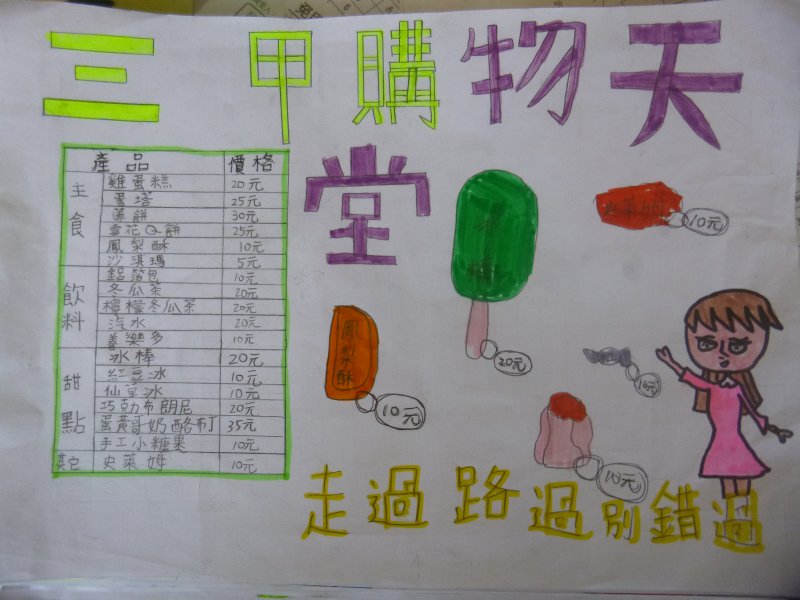 三甲購物天堂
產品 價格
主食
雞蛋糕 20元
蛋塔 25元
薄餅 30元
雪花Q餅 25元
鳳梨酥 10元
沙淇瑪 5元
飲料
鋁箔包 10元
冬瓜茶 20元
檸檬冬瓜茶 20元
汽水 20元
養樂多 10元
甜點
冰棒 20元
紅豆冰 10元
仙豆冰 10元
巧克力布朗尼 20元
蛋黃哥奶酪布丁 35元
手工小糖果 10元
其它
史萊姆 10元
冰棒
20元
史萊姆
10元
鳳梨酥
10元
10元
10元
走過路過別錯過